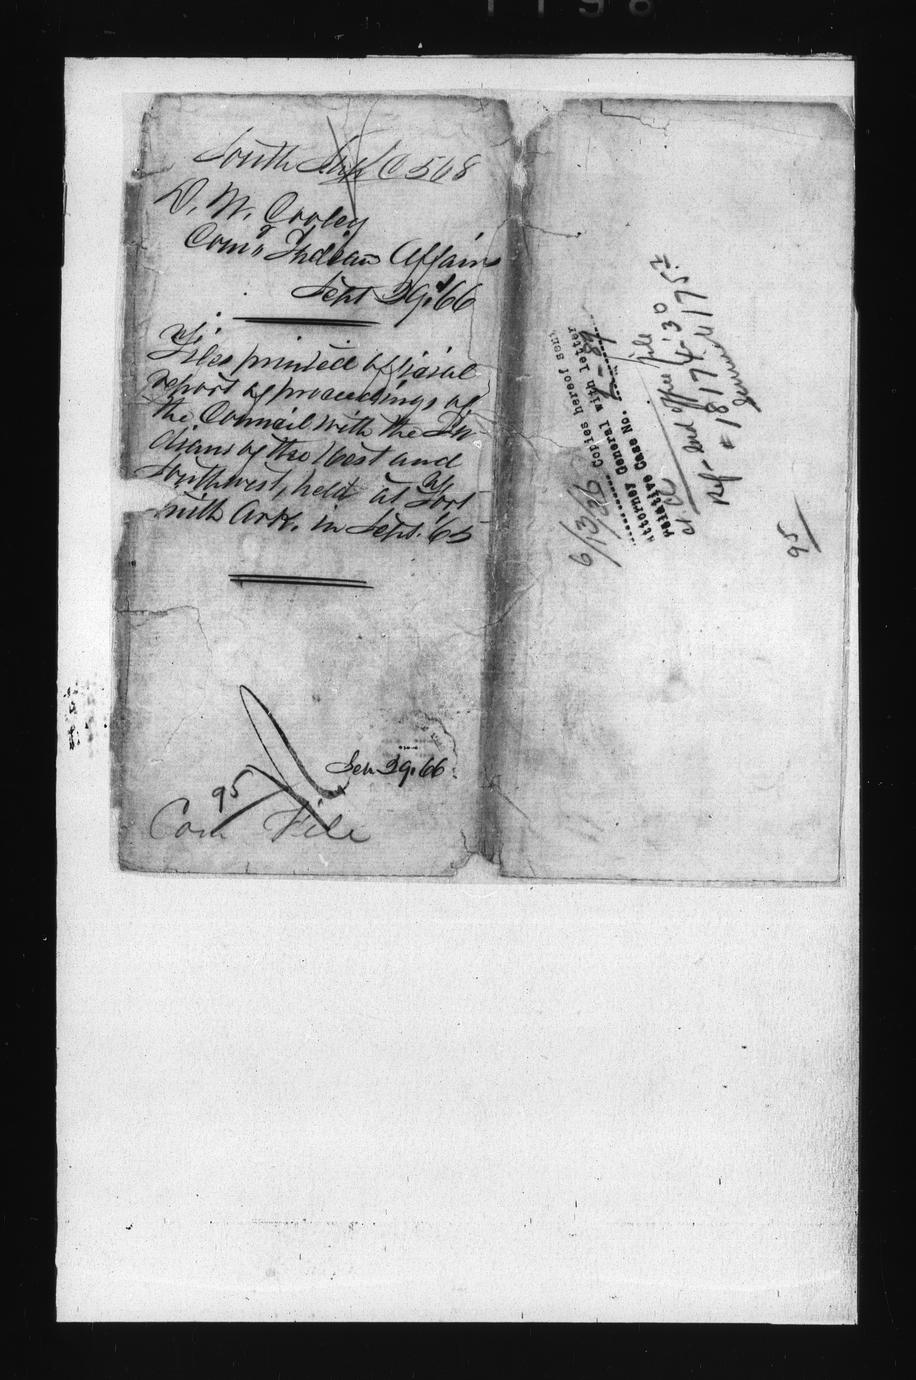 South Sup C 568
D. N. Cooley
Com'r Indian Affairs
Sept 29. 66
Files printed official
report of proceedings of
the Council with the In-
dians of the West and
Southwest, held at Fort
Smith Ark. in Sept. '65
Sep 29. 66
95
Com File
6/13/36 Copies hereof sent
Attorney General with letter
relative Case No. L-89
Ref - # 18171
95